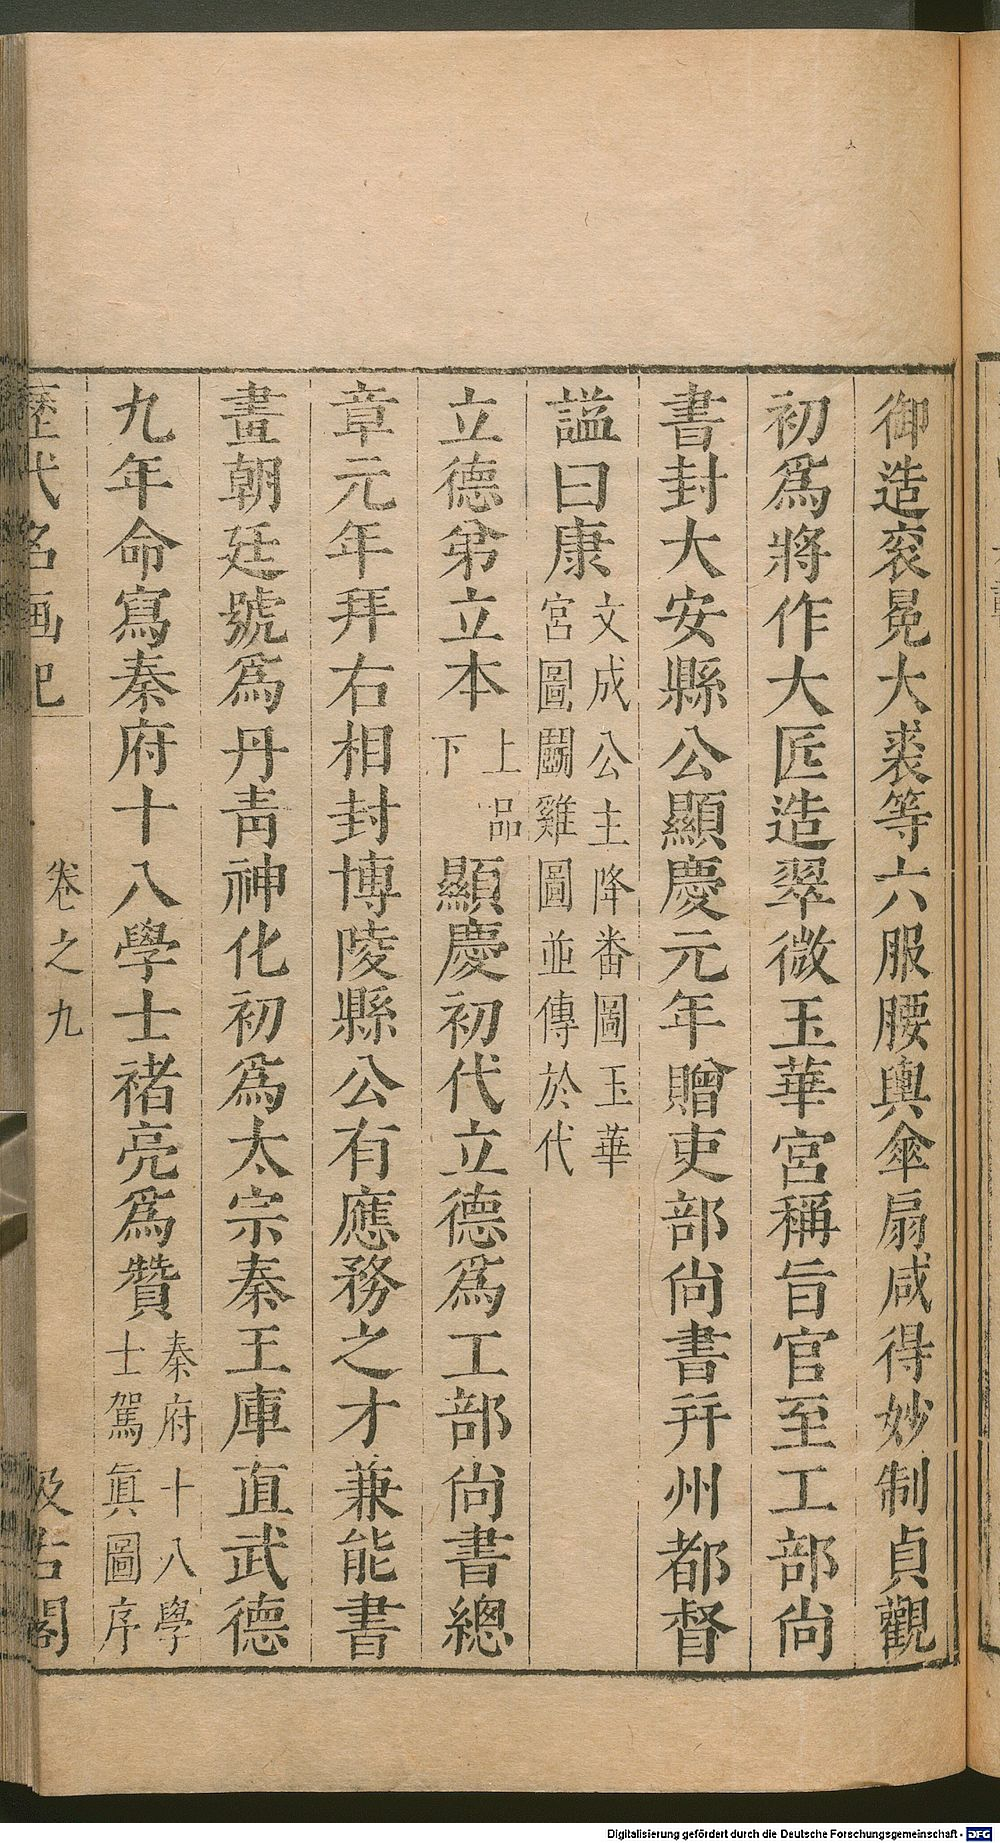 御造衮冕大裘等六服腰輿傘扇咸得妙制貞觀
初爲將作大匠造翠微玉華宮稱旨官至工部尚
書封大安縣公顯慶元年贈吏部尚書并州都督
謚曰康文成公主降番圖玉華
宮圖鬭雞圖並傳於代
立德弟立本上品
下顯慶初代立德爲工部尚書總
章元年拜右相封博陵縣公有應務之才兼能書
畫朝廷號爲丹青神化初爲太宗秦王庫直武德
九年命寫秦府十八學士褚亮爲贊秦府十八學
士駕眞圖序
歷代名画記
卷之九
汲古閣
Digitalisierung gefördert durch die Deutsche Forschungsgemeinschaft - DFG